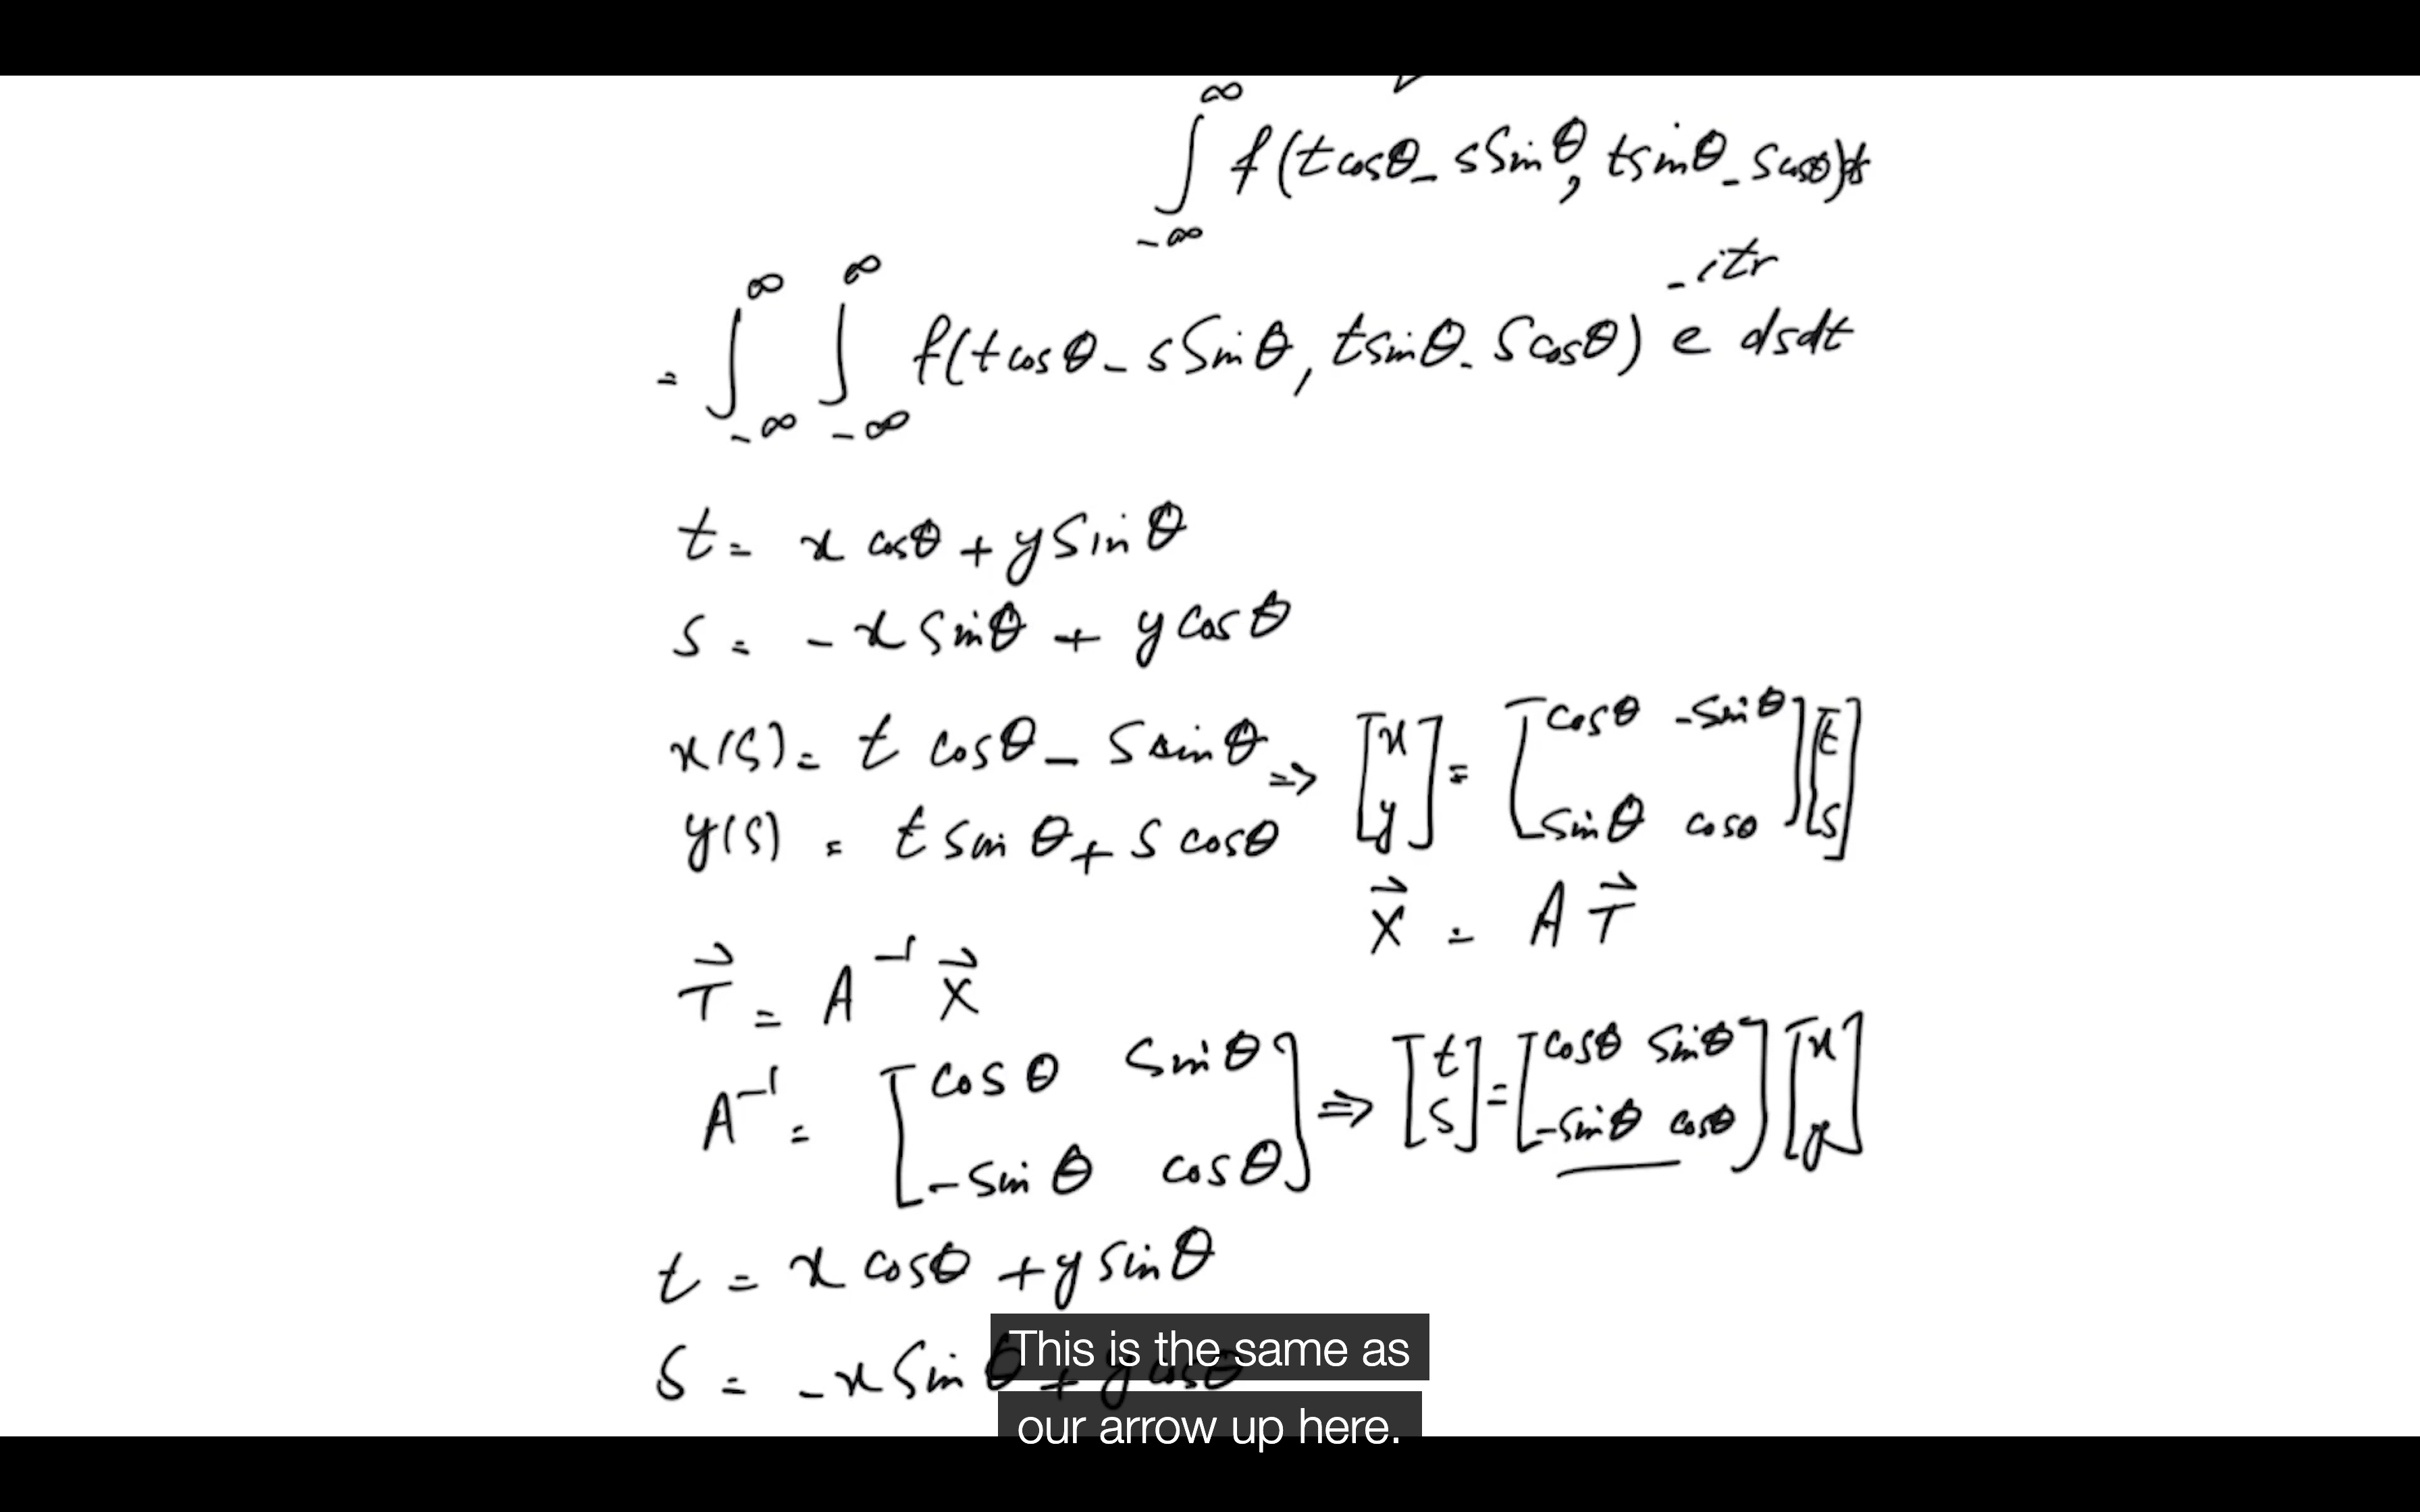 ∫_{-∞}^{∞} f(t cosθ - s sinθ, t sinθ - s cosθ) ds
= ∫_{-∞}^{∞} ∫_{-∞}^{∞} f(t cosθ - s sinθ, t sinθ - s cosθ) e^{-itr} ds dt
t = x cosθ + y sinθ
s = -x sinθ + y cosθ
x(s) = t cosθ - s sinθ ⇒ [x y] = [cosθ -sinθ sinθ cosθ] [t s]
y(s) = t sinθ + s cosθ
X⃗ = A T⃗
T⃗ = A⁻¹ X⃗
A⁻¹ = [cosθ sinθ -sinθ cosθ] ⇒ [t s] = [cosθ sinθ -sinθ cosθ] [x y]
t = x cosθ + y sinθ
s = -x sinθ + y cosθ
This is the same as
our arrow up here.